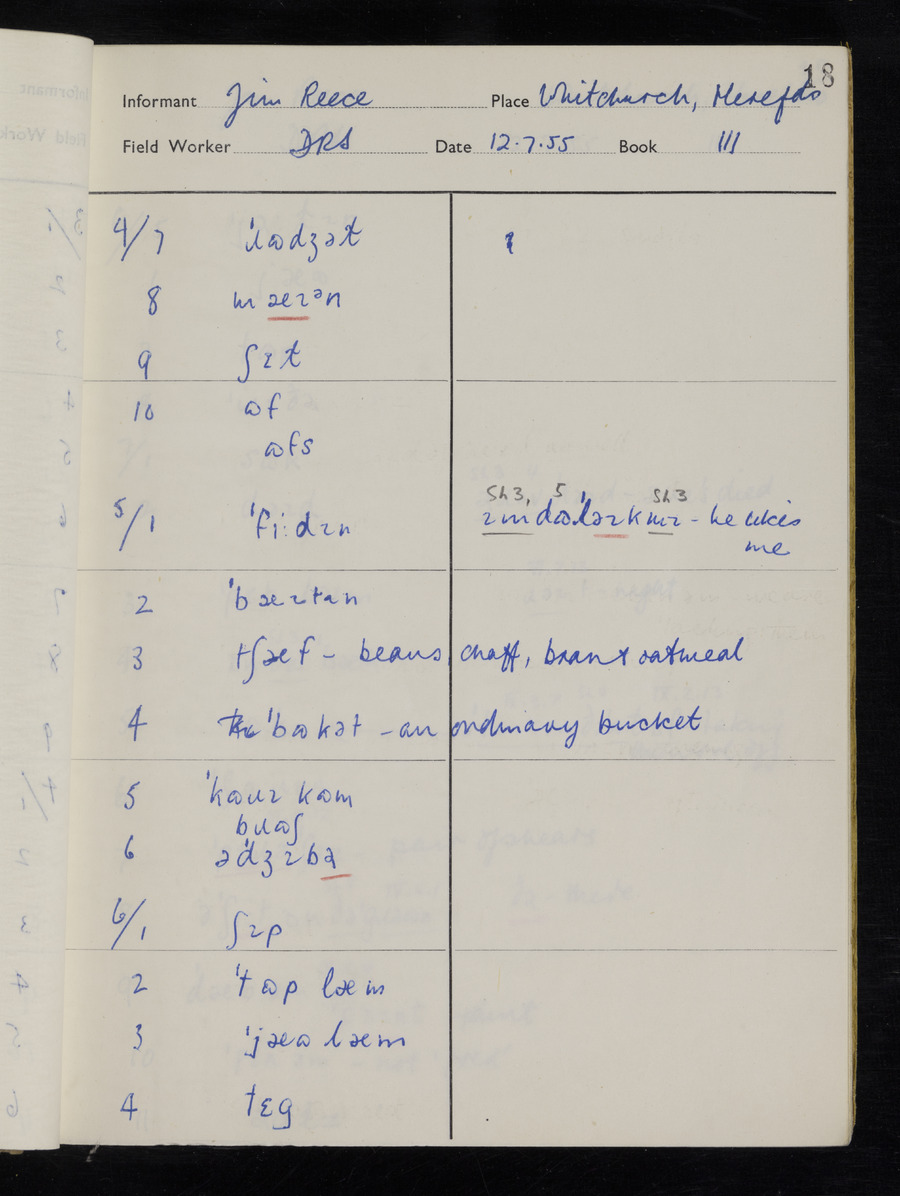 18
Informant Jim Reece Place Whitchurch, Herefds
Field Worker DRS Date 12.7.55 Book III
4/7 ˈɹɷdʒət
8 mæɪᵊn
9 ʃɪt
10 ɷf
ɷfs
5/1 ˈfiːdɪn
Sh3, 5 Sh3
ɪmdɷˈləɪkmɪ - he likes
me
2 ˈbæɪtan
3 tʃæf - beans, chaff, bran & oatmeal
4 ˈbɷkət - an ordinary bucket
5 ˈkaʊɪ kɷm
bɹɷʃ
6 əˈdʒɪbə
6/1 ʃɪp
2 ˈtɷp læm
3 ˈjæɷ læm
4 tɛg